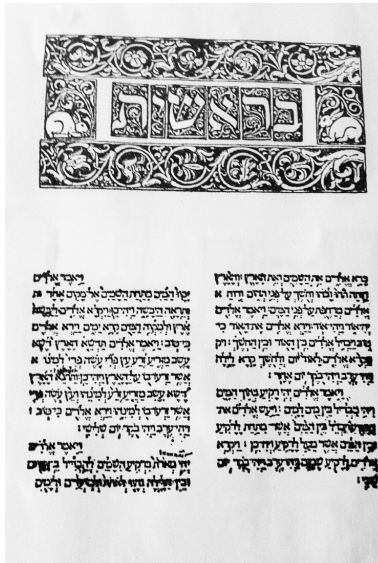 בראשית
ברא אלדים את השמים ואת הארץ והארץ
היתה תהו ובהו וחשך על פני תהום ורוח א
אלדים מרחפת על פני המים: ויאמר אלדים
יהי אור ויהי אור וירא אלדים את האור כי
טוב ויבדל אלדים בין האור ובין החשך: ויק
ויקרא אלדים לאור יום ולחשך קרא לילה
ויהי ערב ויהי בקר יום אחד:
ויאמר אלדים יהי רקיע בתוך המים
ויהי מבדיל בין מים למים: ויעש אלדים את
הרקיע ויבדל בין המים אשר מתחת לרקיע
ובין המים אשר מעל לרקיע ויהי כן: ויקרא
אלדים לרקיע שמים ויהי ערב ויהי בקר יום
שני:
ויאמר אלדים
יקוו המים מתחת השמים אל מקום אחד ות
ותראה היבשה ויהי כן: ויקרא אלדים ליבשה
ארץ ולמקוה המים קרא ימים וירא אלדים
כי טוב: ויאמר אלדים תדשא הארץ דשא
עשב מזריע זרע עץ פרי עשה פרי למינו א
אשר זרעו בו על הארץ ויהי כן: ותוצא הארץ
דשא עשב מזריע זרע למינהו ועץ עשה פרי
אשר זרעו בו למינהו וירא אלדים כי טוב:
ויהי ערב ויהי בקר יום שלישי:
ויאמר אלדים
יהי מארת ברקיע השמים להבדיל בין היום
ובין הלילה והיו לאתת ולמועדים ולימים